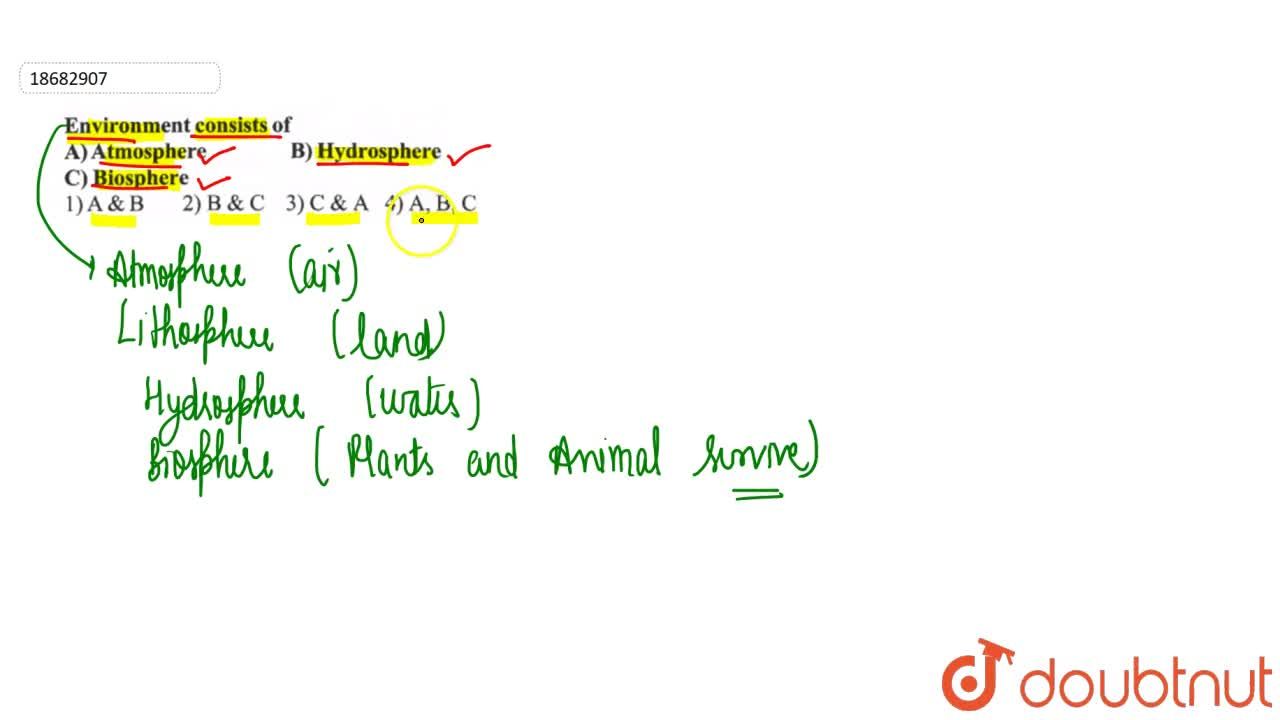 18682907
Environment consists of
A) Atmosphere B) Hydrosphere
C) Biosphere
1) A & B 2) B & C 3) C & A 4) A, B, C
Atmosphere (air)
Lithosphere (land)
Hydrosphere (water)
Biosphere (Plants and Animal survive)
doubtnut